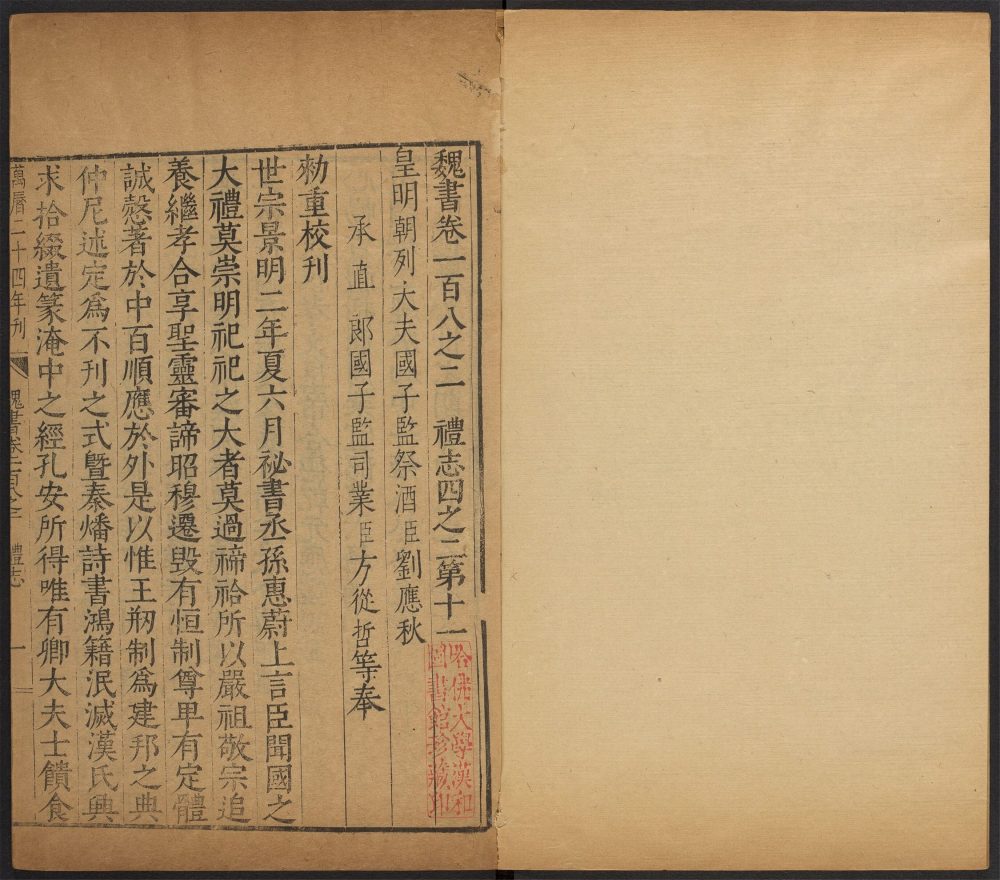 魏書卷一百八之二　禮志四之二第十一
皇明朝列大夫國子監祭酒臣劉應秋
承直郎國子監司業臣方從哲等奉
勑重校刊
世宗景明二年夏六月祕書丞孫惠蔚上言臣聞國之
大禮莫崇明祀祀之大者莫過禘祫所以嚴祖敬宗追
養繼孝合享聖靈審諦昭穆遷毀有恒制尊卑有定體
誠慤著於中百順應於外是以惟王剏制爲建邦之典
仲尼述定爲不刊之式曁秦燔詩書鴻籍泯滅漢氏興
求拾綴遺篆淹中之經孔安所得唯有卿大夫士饋食
萬曆二十四年刊
魏書卷一百八之二　禮志　一
哈佛大學漢和
圖書館珍藏印